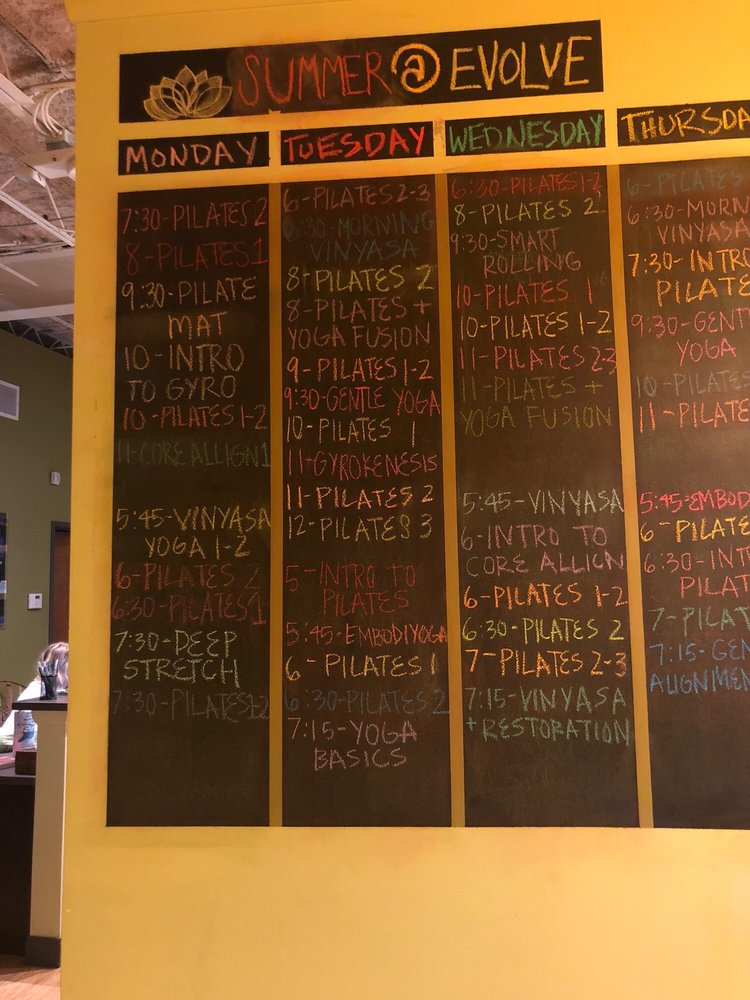 SUMMER @ EVOLVE
MONDAY
7:30-PILATES 2
8-PILATES 1
9:30-PILATE
MAT
10-INTRO
TO GYRO
10-PILATES 1-2
11-CORE ALLIGN 1
5:45-VINYASA
YOGA 1-2
6-PILATES 2
6:30-PILATES 1
7:30-DEEP
STRETCH
7:30-PILATES 1-2
TUESDAY
6-PILATES 2-3
6:30-MORNING
VINYASA
8-PILATES 2
8-PILATES +
YOGA FUSION
9-PILATES 1-2
9:30-GENTLE YOGA
10-PILATES 1
11-GYROKENESIS
11-PILATES 2
12-PILATES 3
5-INTRO TO
PILATES
5:45-EMBODIYOGA
6-PILATES 1
6:30-PILATES 2
7:15-YOGA
BASICS
WEDNESDAY
6:30-PILATES 1-2
8-PILATES 2
9:30-SMART
ROLLING
10-PILATES 1
10-PILATES 1-2
11-PILATES 2-3
11-PILATES +
YOGA FUSION
5:45-VINYASA
6-INTRO TO
CORE ALLIGN
6-PILATES 1-2
6:30-PILATES 2
7-PILATES 2-3
7:15-VINYASA
+RESTORATION
THURSDA
6-PILATES
6:30-MORN
VINYASA
7:30-INTRO
PILATE
9:30-GENT
YOGA
10-PILATES
11-PILATE
5:45-EMBOD
6-PILATE
6:30-INT
PILAT
7-PILAT
7:15-GEN
ALIGNMEN